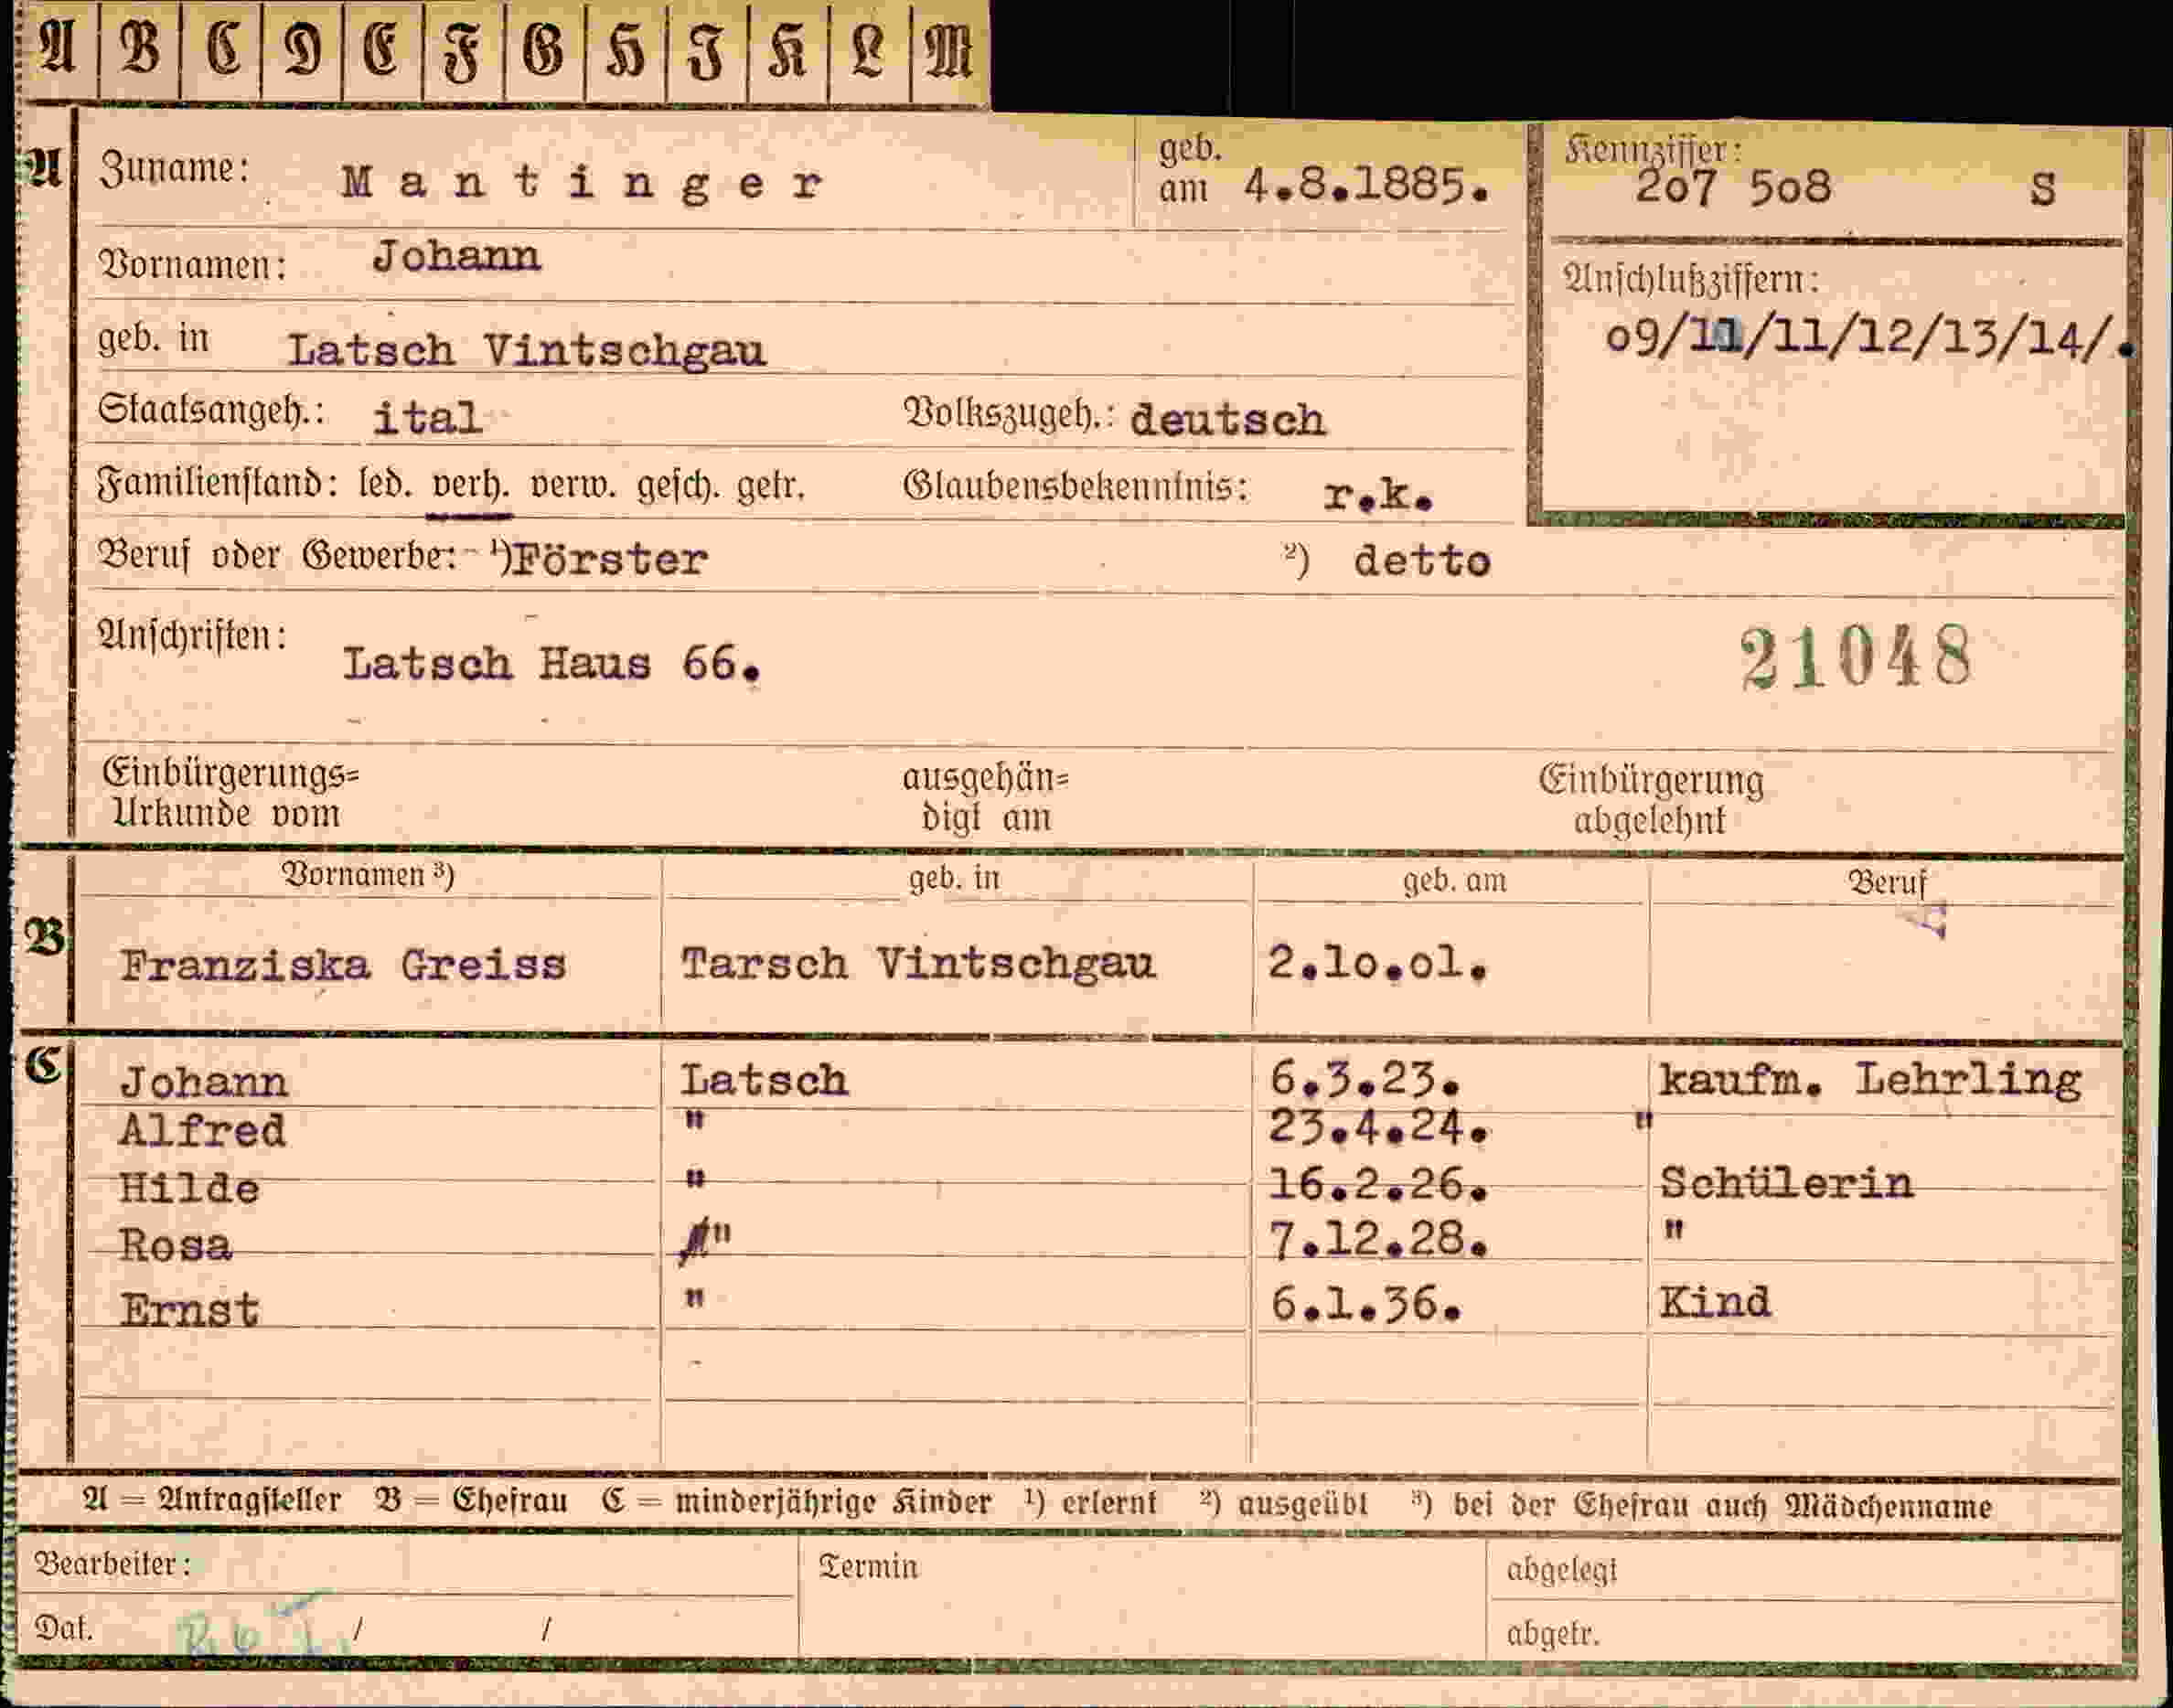 A B C D E F G H I K L M
A Zuname: Mantinger geb. am 4.8.1885. Kennziffer: 2o7 5o8 S
Vornamen: Johann
Anschlußziffern:
geb. in Latsch Vintschgau o9/11/11/12/13/14/.
Staatsangeh.: ital Volkszugeh.: deutsch
Familienstand: led. verh. verw. gesch. getr. Glaubensbekenntnis: r.k.
Beruf oder Gewerbe: ¹)Förster ²) detto
Anschriften: Latsch Haus 66. 21048
Einbürgerungs= ausgehän= Einbürgerung
Urkunde vom digt am abgelehnt
Vornamen ³) geb. in geb. am Beruf
A
B Franziska Greiss Tarsch Vintschgau 2.1o.o1.
C Johann Latsch 6.3.23. kaufm. Lehrling
Alfred " 23.4.24. "
Hilde " 16.2.26. Schülerin
Rosa " 7.12.28. "
Ernst " 6.1.36. Kind
A = Antragsteller B = Ehefrau C = minderjährige Kinder ¹) erlernt ²) ausgeübt ³) bei der Ehefrau auch Mädchenname
Bearbeiter: Termin abgelegt
Dat. / / abgetr.